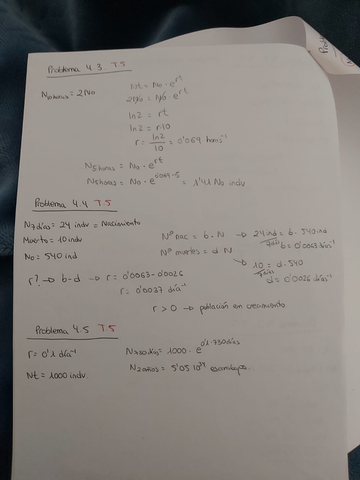 Problema 4.3 T.5
N10horas = 2No
Nt = No · e^rt
2No = No · e^rt
ln2 = rt
ln2 = r10
r = ln2/10 = 0'069 horas⁻¹
N5horas = No · e^rt
N5horas = No · e^0'069·5 = 1'41 No indv
Problema 4.4 T.5
N7días = 24 indv = Nacimiento
Muerto = 10 indv
No = 540 ind
r? → b-d → r = 0'0063 - 0'0026
r = 0'0037 día⁻¹
Nº nac = b · N → 24 ind/7días = b · 540 ind
b = 0'0063 día⁻¹
Nº muertes = d · N
→ 10/7días = d · 540
d = 0'0026 día⁻¹
r > 0 → población en crecimiento
Problema 4.5 T.5
r = 0'1 día⁻¹
Nt = 1000 indv.
N730días = 1000 · e^0'1·730días
N2años = 5'05 10³⁴ escarabajos.
Problema